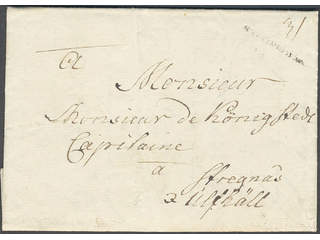 A
Monsieur
Monsieur de Königstedt
Capitaine
a
Stregnäs
Ulfhäll